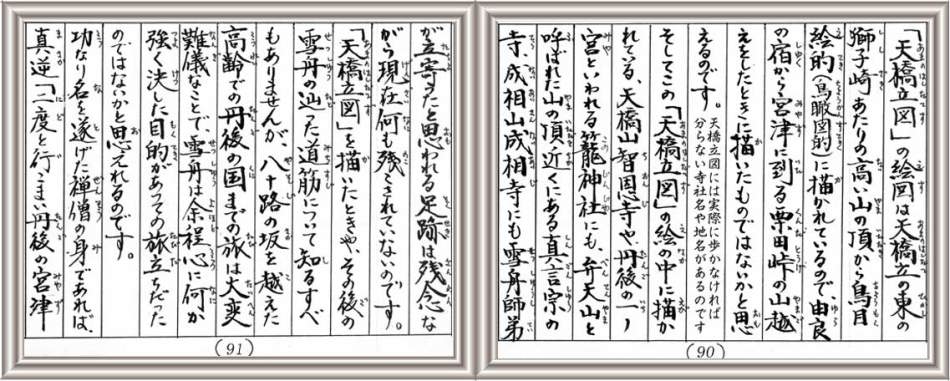 「天橋立図」の絵図は天橋立の東の
獅子崎あたりの高い山の頂から鳥目
絵的(鳥瞰図的)に描かれているので、由良
の宿から宮津に到る栗田峠の山越
えをしたときに描いたものではないかと思
えるのです。
天橋立図には実際に歩かなければ
分らない寺社名や地名があるのです
そしてこの「天橋立図」の絵の中に描か
れている、天橋山智恩寺や、丹後の一ノ
宮といわれる籠神社にも、弁天山と
呼ばれた山の頂近くにある真言宗の
寺、成相山成相寺にも雪舟師弟
(90)
が立寄ったと思われる足跡は残念な
がら現在何も残こされていないのです。
「天橋立図」を描いたときや、その後の
雪舟の辿った道筋について知るすべ
もありませんが、八十路の坂を越えた
高齢での丹後の国までの旅は大変
難儀なことで、雪舟は余程心に何か
強く決した目的があっての旅立ちだった
のではないかと思えれるのです。
功なり名を遂げた禅僧の身であれば、
真逆「二度と行くまい丹後の宮津
(91)